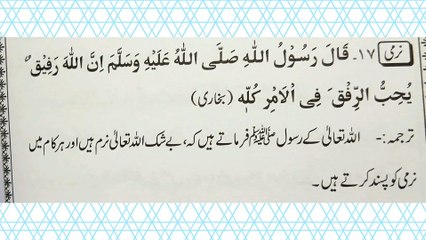 نرمی ۱۷۔ قَالَ رَسُوْلُ اللهِ صَلَّى اللهُ عَلَيْهِ وَسَلَّمَ اِنَّ اللهَ رَفِيْقٌ
يُحِبُّ الرِّفْقَ فِى الْاَمْرِ كُلِّهٖ (بخاری)
ترجمہ:- اللہ تعالیٰ کے رسول ﷺ فرماتے ہیں کہ، بے شک اللہ تعالیٰ نرم ہیں اور ہر کام میں
نرمی کو پسند کرتے ہیں۔